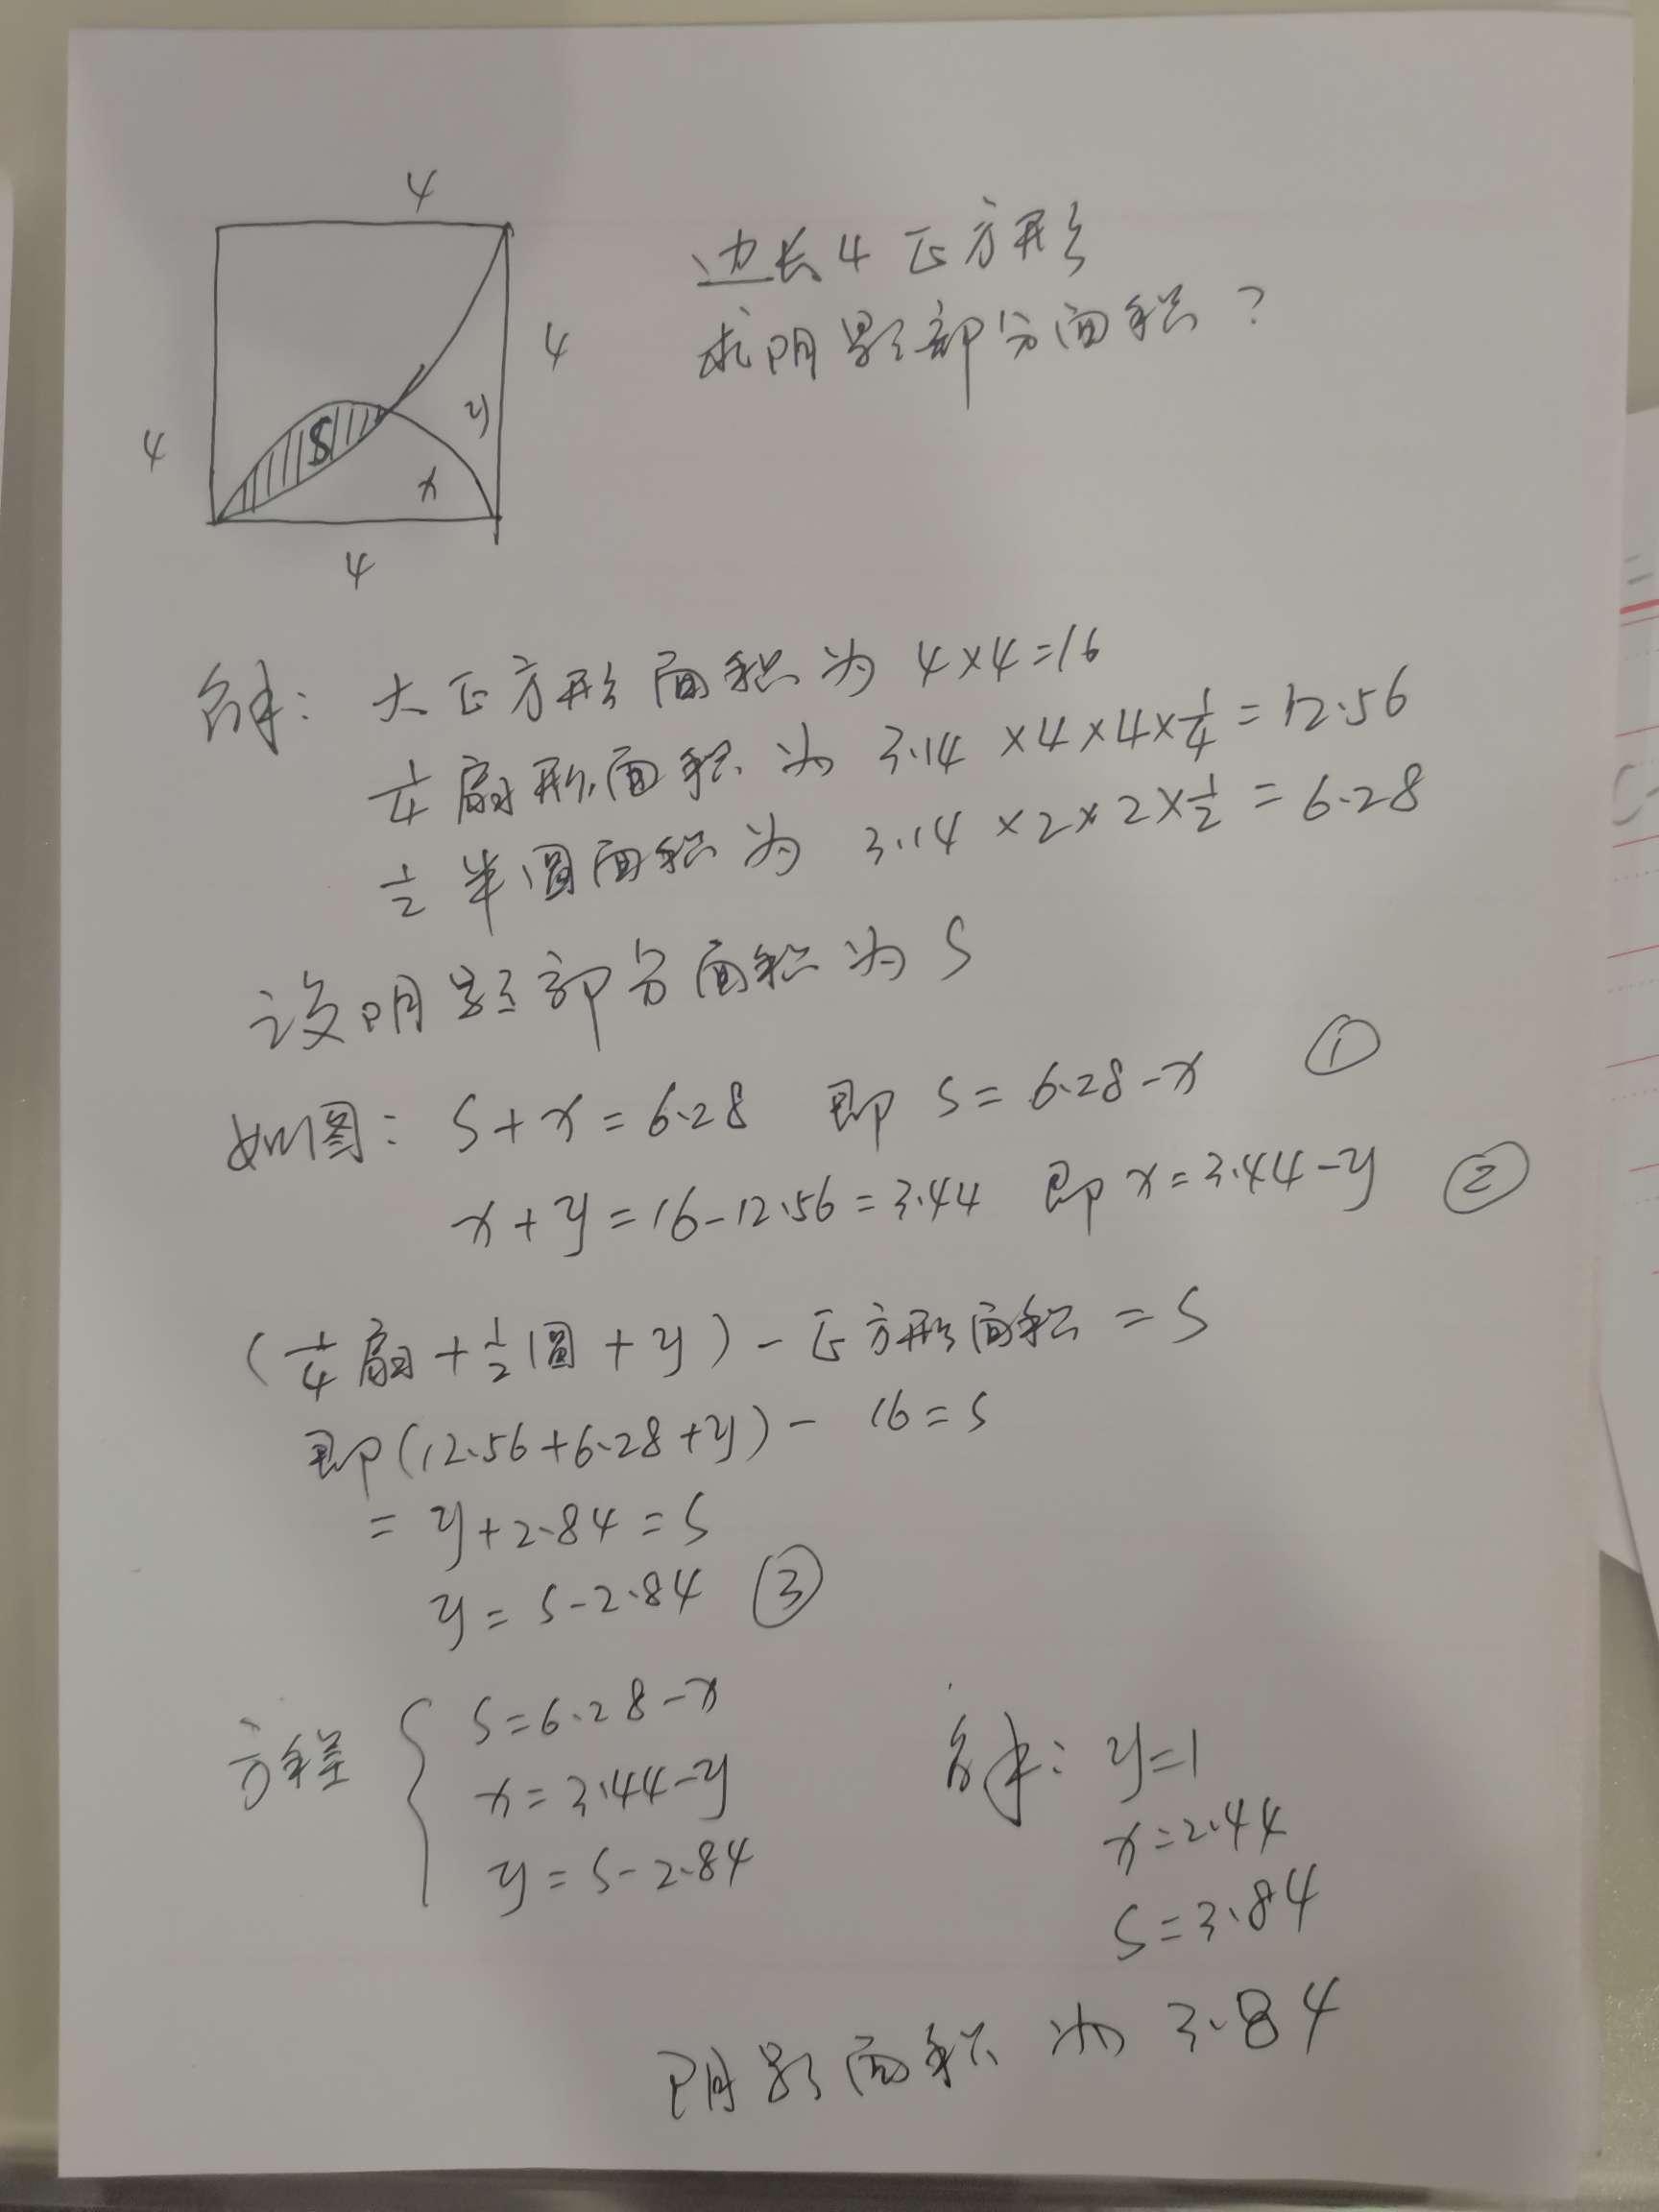 4
边长4正方形
求阴影部分面积?
4
4
S
y
x
4
解: 大正方形面积为 4×4=16
1/4扇形面积为 3.14×4×4×1/4=12.56
1/2半圆面积为 3.14×2×2×1/2=6.28
设阴影部分面积为S
如图: S+x=6.28 即 S=6.28-x ①
x+y=16-12.56=3.44 即 x=3.44-y ②
(1/4扇+1/2圆+y)-正方形面积=S
即(12.56+6.28+y)-16=S
=y+2.84=S
y=S-2.84 ③
方程 { S=6.28-x
x=3.44-y
y=S-2.84
解: y=1
x=2.44
S=3.84
阴影面积为 3.84